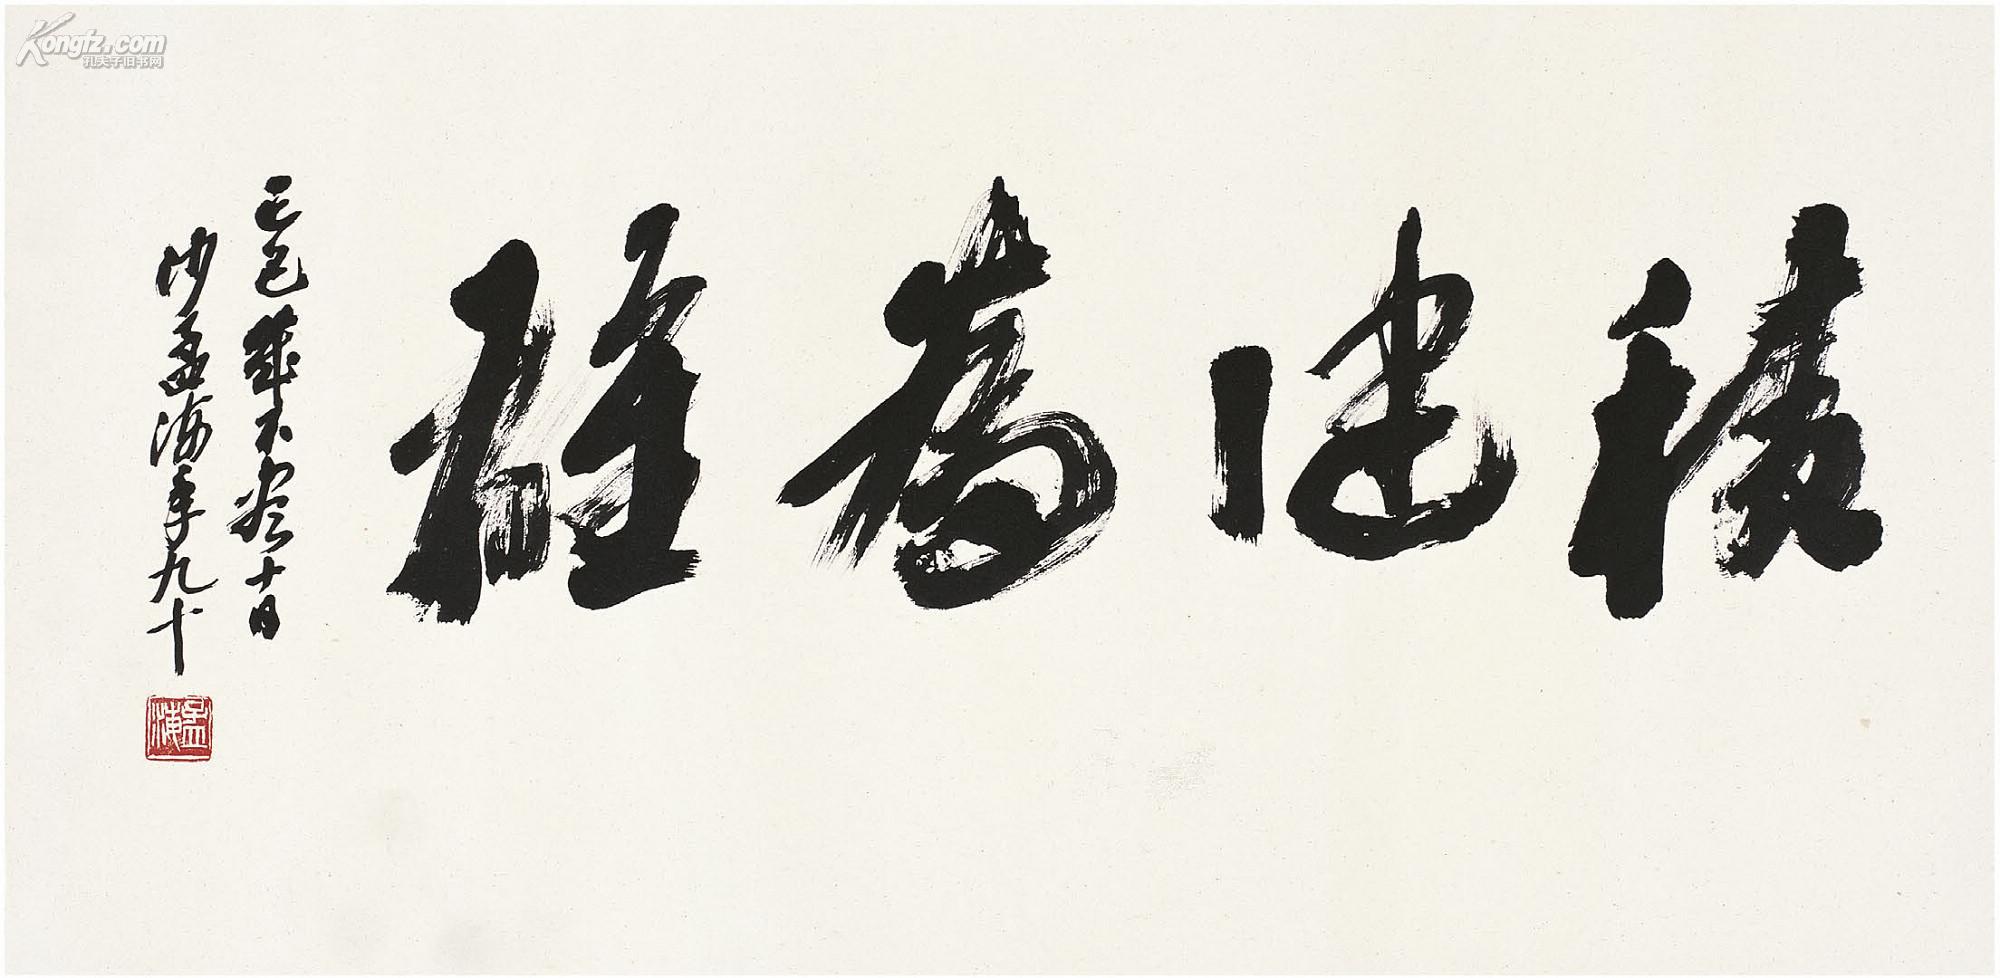 積健為雄
己巳歲不盡十日
沙孟海年九十
孟海
Kongfz.com
孔夫子旧书网